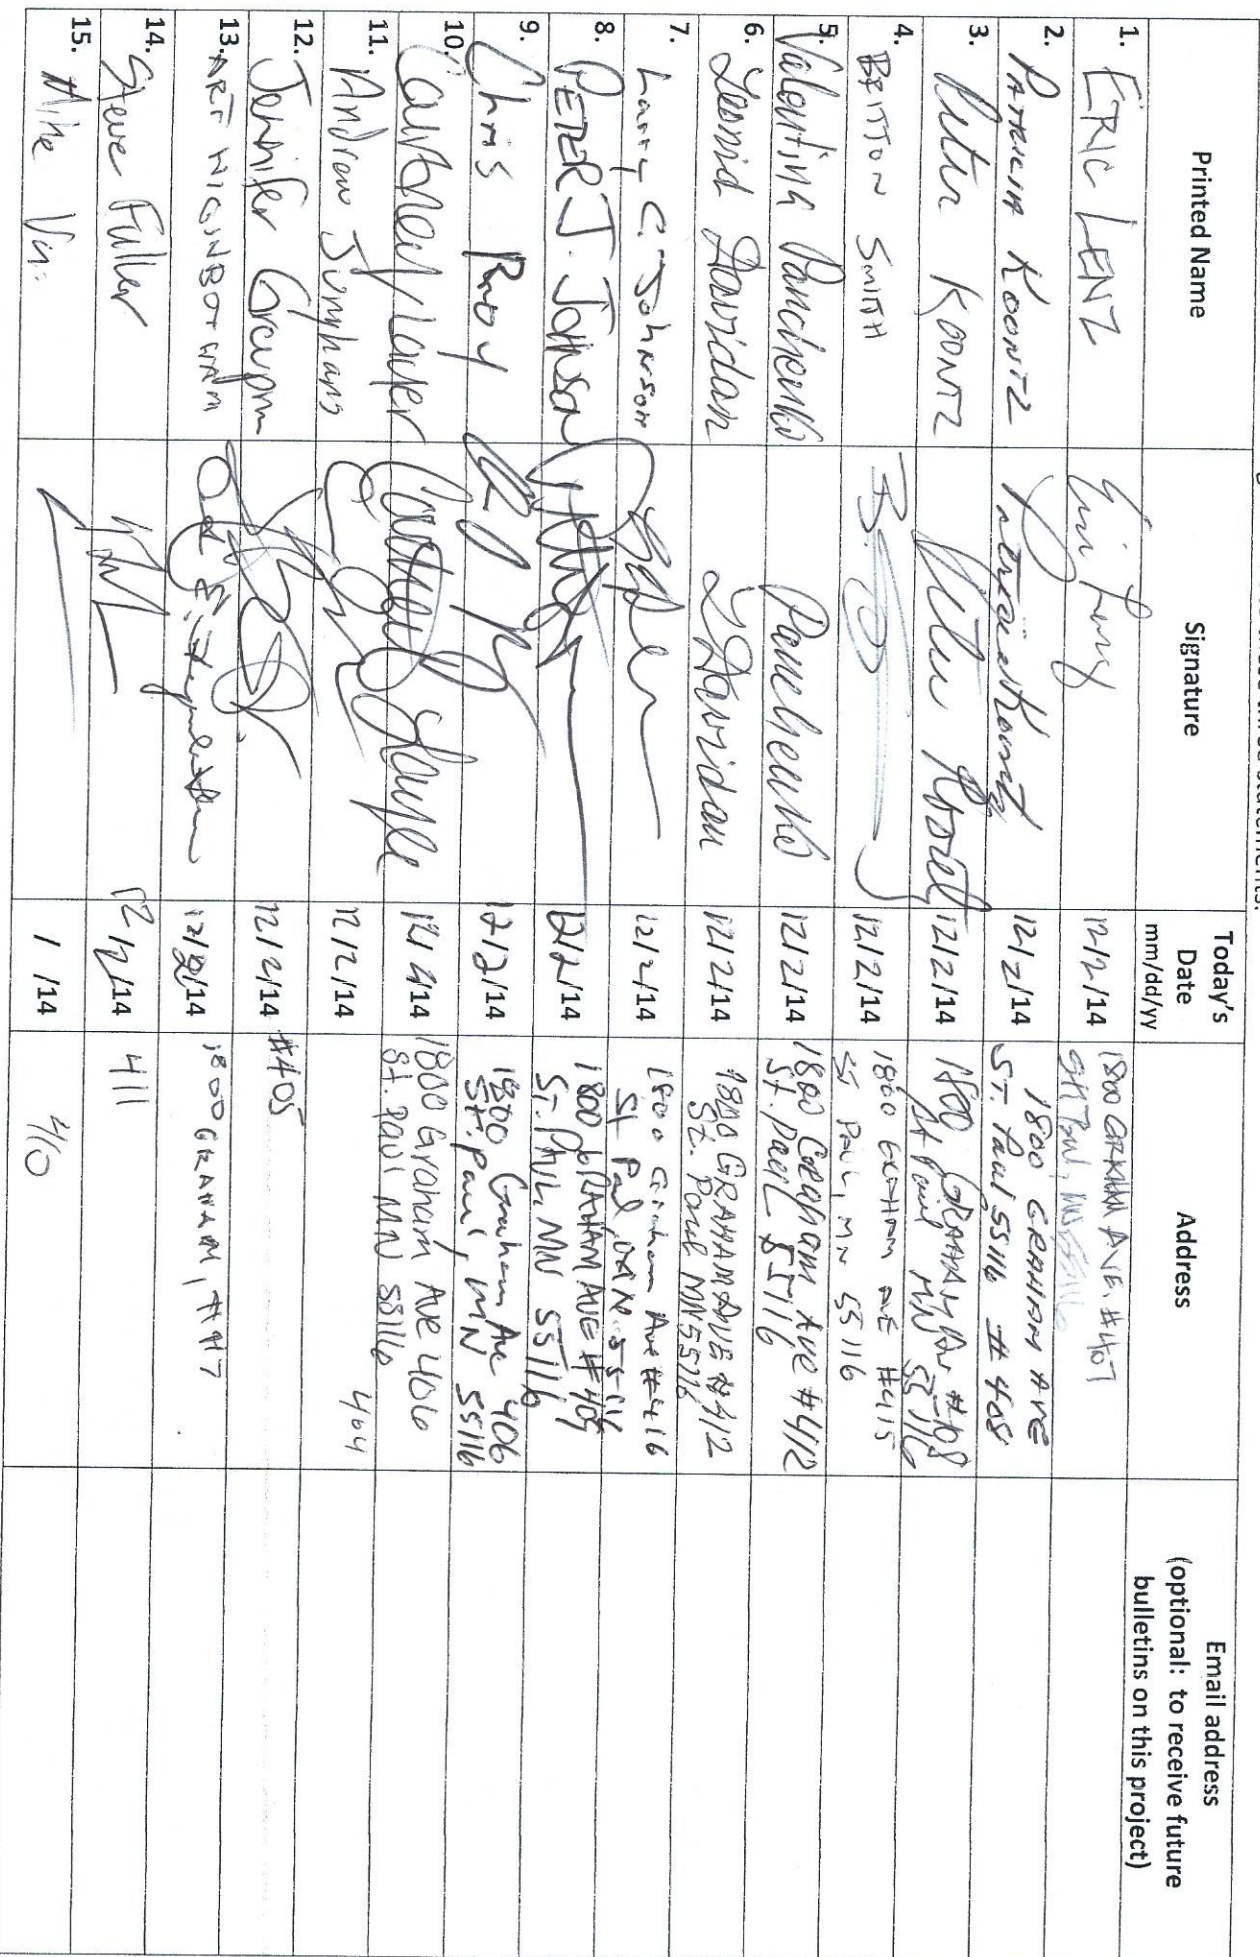 these three statements.
Printed Name
Signature
Today's
Date
mm/dd/yy
Address
Email address
(optional: to receive future
bulletins on this project)
1. ERIC LENZ 12/2/14 1800 GRAHAM AVE. #407
2. PATRICIA KOONTZ Patricia Koontz 12/2/14 1800 GRAHAM AVE
ST. Paul 55116 #408
3. KOONTZ 12/2/14 1800 GRAHAM Ave #408
St Paul MN 55116
4. BRITTON SMITH 12/2/14 1800 GRAHAM AVE #415
ST PAUL, MN 55116
5. Valentina Panchenko Panchenko 12/2/14 1800 Graham Ave #412
St. Paul 55116
6. Leonid Davidan LDavidan 12/2/14 1800 GRAHAM AVE #412
St. Paul MN 55116
7. Larry C. Johnson 12/2/14 1800 Graham Ave #416
St Paul, MN 55116
8. PETER J. JOHNSON 12/2/14 1800 GRAHAM AVE #409
ST. PAUL, MN 55116
9. Chris Roy 12/2/14 1800 Graham Ave 406
St. Paul, MN 55116
10. Courtney 12/2/14 1800 Graham Ave 406
St. Paul MN 55116
11. Andrew 12/2/14 404
12. Jennifer 12/2/14 #405
13. ART HIGINBOTHAM 12/2/14 1800 GRAHAM, #417
14. Steve Fuller 12/2/14 411
15. Mike / /14 410